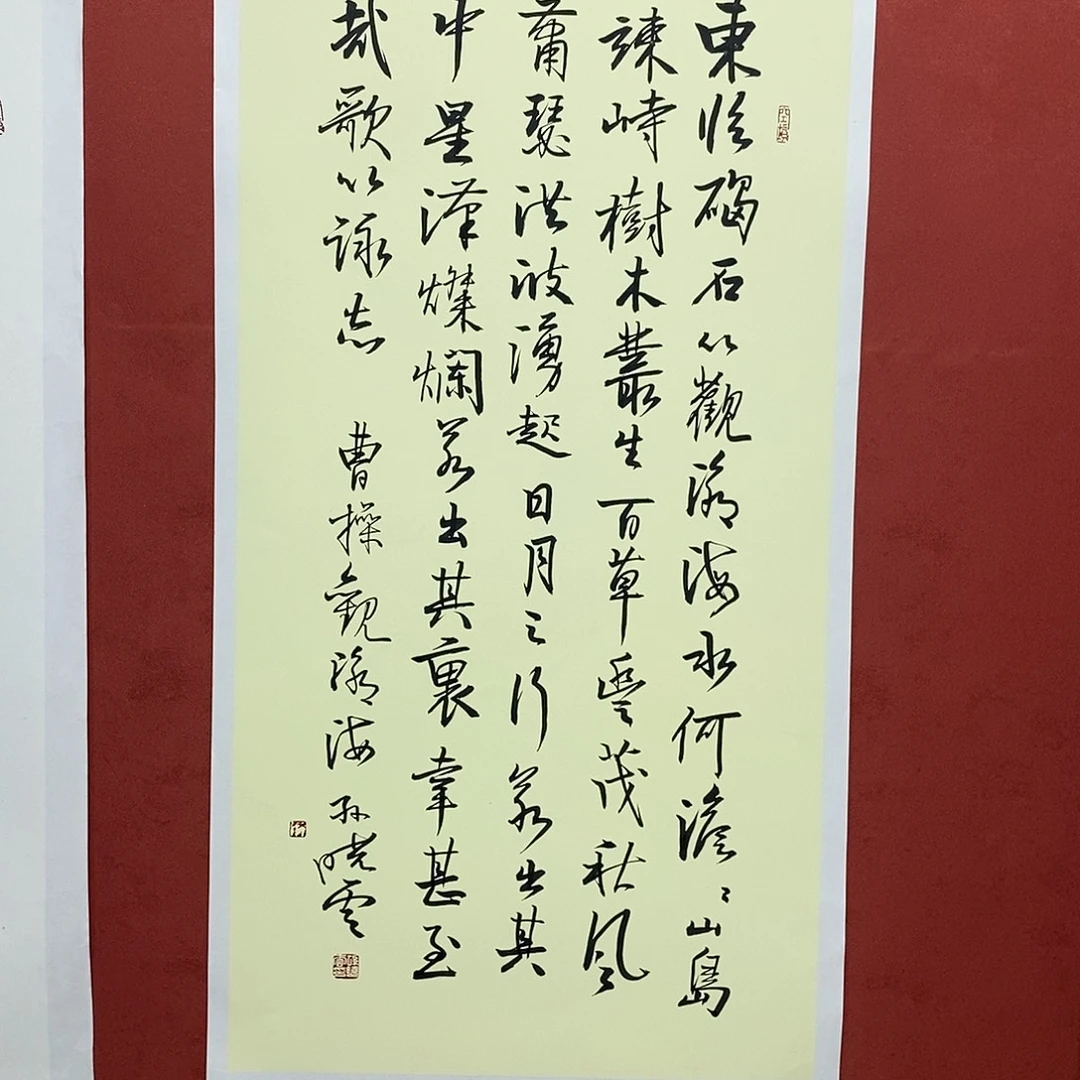 東臨碣石以觀滄海水何澹〻山島
竦峙樹木叢生百草豐茂秋風
蕭瑟洪波湧起日月之行若出其
中星漢燦爛若出其裏幸甚至
哉歌以詠志 曹操觀滄海 孫曉雲